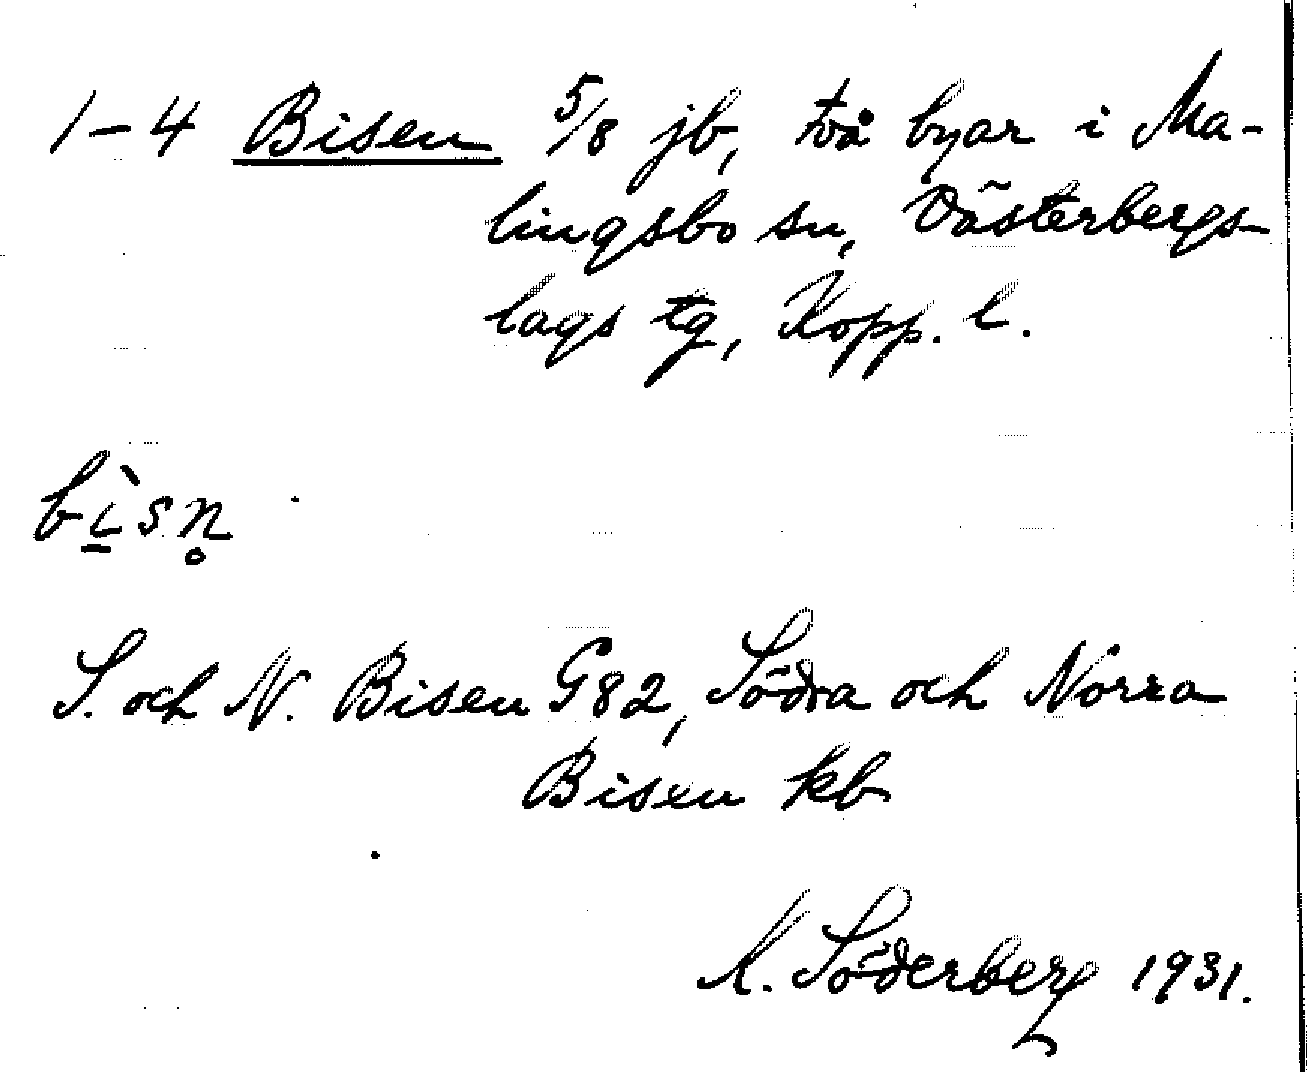 1-4 Bisen 5/8 jb, två byar i Ma-
lingsbo sn, Västerbergs-
lags tg, Kopp. l.
bì̱sn̥
S. och N. Bisen G82, Södra och Norra
Bisen kb
K. Söderberg 1931.